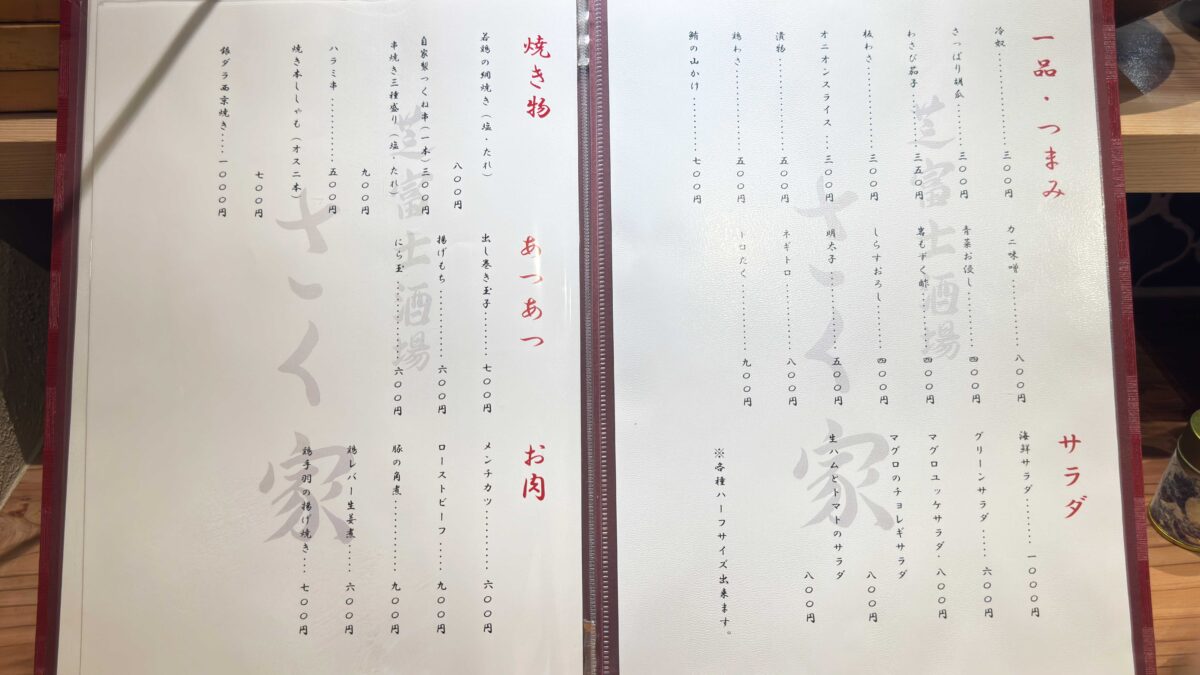 一品・つまみ
冷奴・・・・・・・・・・三〇〇円
さっぱり胡瓜・・・・・・三〇〇円
わさび茄子・・・・・・・三五〇円
板わさ・・・・・・・・・三〇〇円
オニオンスライス・・・・三〇〇円
漬物・・・・・・・・・・五〇〇円
鶏わさ・・・・・・・・・五〇〇円
鮪の山かけ・・・・・・・七〇〇円
カニ味噌・・・・・・・・八〇〇円
青菜お浸し・・・・・・・四〇〇円
岩もずく酢・・・・・・・四〇〇円
しらすおろし・・・・・・四〇〇円
明太子・・・・・・・・・五〇〇円
ネギトロ・・・・・・・・八〇〇円
トロたく・・・・・・・・九〇〇円
サラダ
海鮮サラダ・・・・・一〇〇〇円
グリーンサラダ・・・・・六〇〇円
マグロユッケサラダ・八〇〇円
マグロのチョレギサラダ
八〇〇円
生ハムとトマトのサラダ
八〇〇円
※各種ハーフサイズ出来ます。
芝富士酒場
さく家
焼き物
若鶏の網焼き（塩・たれ）
八〇〇円
自家製つくね串（一本）三〇〇円
串焼き三種盛り（塩・たれ）
九〇〇円
ハラミ串・・・・・・・・五〇〇円
焼き本ししゃも（オス二本）
七〇〇円
銀ダラ西京焼き・・・・一〇〇〇円
あつあつ
出し巻き玉子・・・・・・七〇〇円
揚げもち・・・・・・・・六〇〇円
にら玉・・・・・・・・・六〇〇円
お肉
メンチカツ・・・・・・・六〇〇円
ローストビーフ・・・・九〇〇円
豚の角煮・・・・・・・・九〇〇円
鶏レバー生姜煮・・・・・六〇〇円
鶏手羽の揚げ焼き・・・七〇〇円
芝富士酒場
さく家